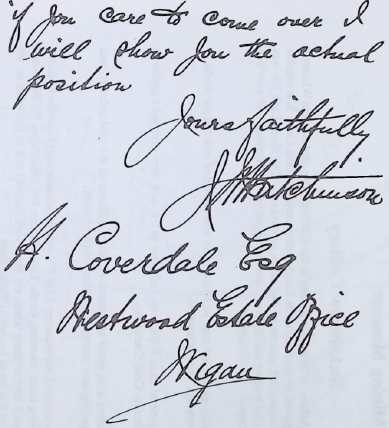 if you care to come over I
will show you the actual
position
Yours faithfully
J Hutchinson
H. Coverdale Esq
Westwood Estate Office
Wigan